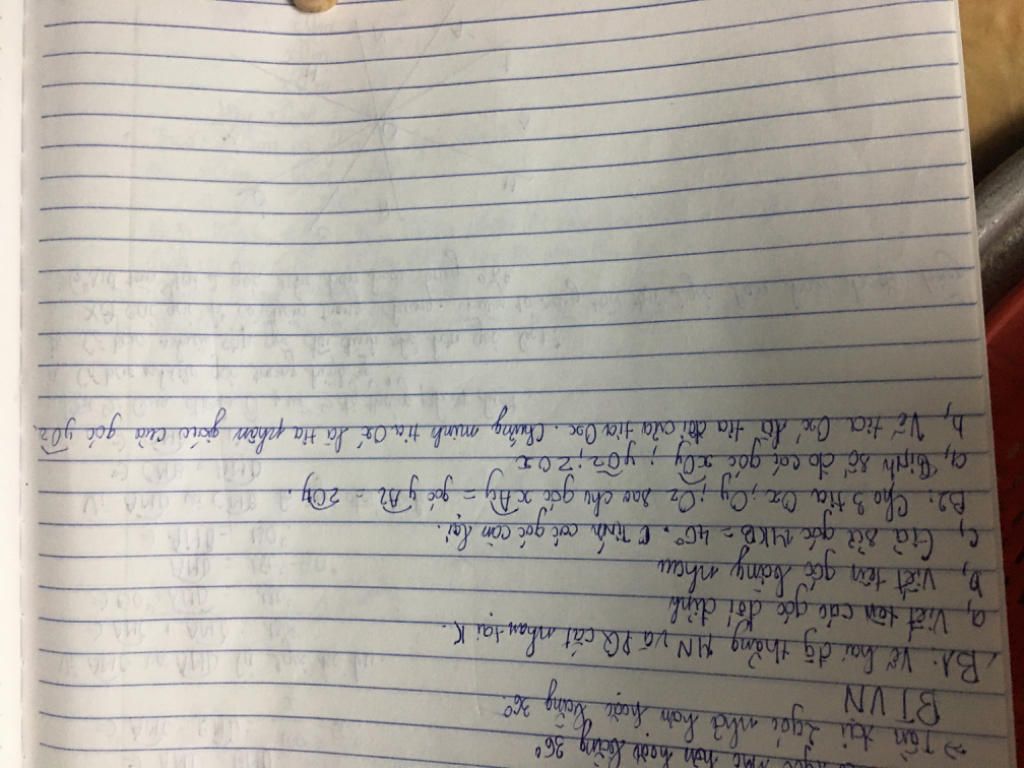 góc nhỏ hơn hoặc bằng 36°
=> Tồn tại 2 góc nhỏ hơn hoặc bằng 36°.
BTVN
B1: Vẽ hai đg thẳng MN và PQ cắt nhau tại K.
a, Viết tên các góc đối đỉnh
b, Viết tên góc bằng nhau
c, Giả sử góc MKB = 40°. Tính các góc còn lại.
B2: Cho 3 tia Ox; Oy; Oz sao cho góc xAy = góc yAz = zOy.
a, Định số đo các góc xOy; yOz; zOx
b, Vẽ tia Ox' là tia đối của tia Ox. Chứng minh tia Ox' là tia phân giác của góc yOz.